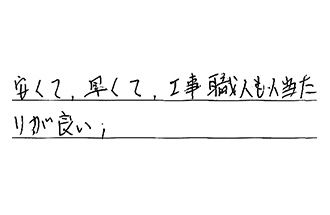 安くて,早くて,工事職人も人当た
りが良い;